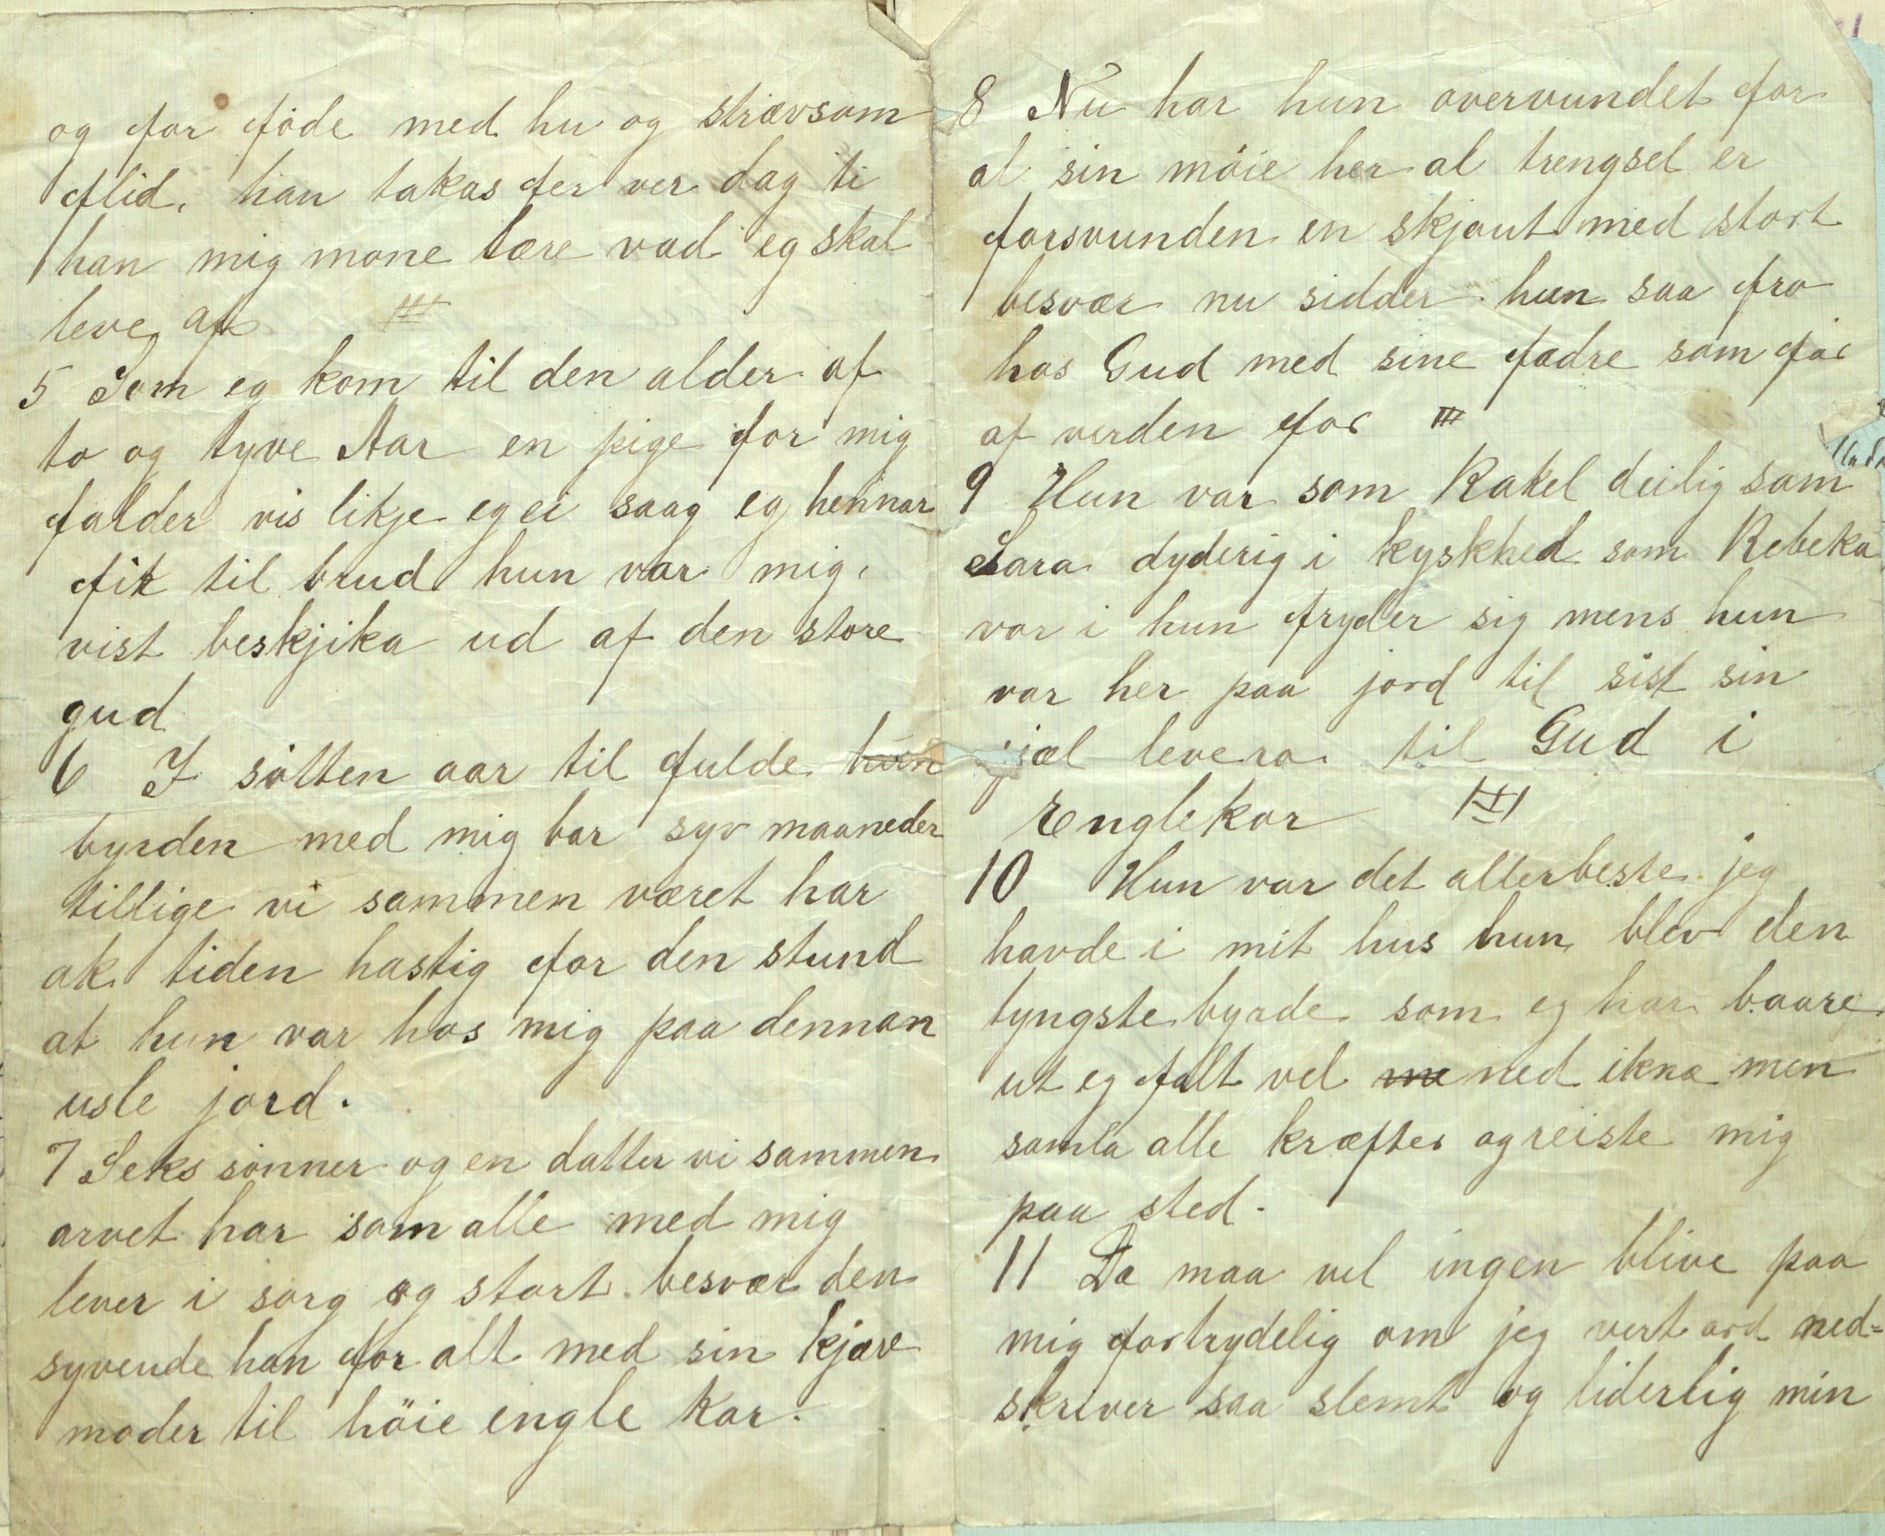 og for föde med hu og strævsom
flid. han takas fer ver dag ti
han mig mone lære vad eg skal
leve af
5 Som eg kom til den alder af
to og tyve Aar en pige for mig
falder vis likje eg ei saag eg hennar
fik til brud hun var mig.
vist beskjika ud af den store
gud
6 I sötten aar til fulde hun
byrden med mig bar syv maaneder
tillige vi sammen været har
ak tiden hastig for den stund
at hun var hos mig paa dennan
usle jord.
7 Seks sönner og en datter vi sammen
arvet har som alle med mig
lever i sorg og stort besvær den
syvende han for alt med sin kjære
moder til höie engle kor.
8 Nu har hun overvundet for
al sin möie her al trengsel er
forsvunden en skjout med stort
besvær nu sidder hun saa fro
hos Gud med sine fædre som før
af verden for
9 Hun var som Rakel deilig som
Sara dyderig i kyskhed som Rebeka
vor i hun fryder sig mens hun
var her paa jord til sist sin
sjæl levera til Gud i
Englekor
10 Hun var det allerbeste jeg
havde i mit hus hun blev den
tyngste byrde som eg har baare
ut eg falt vel me ned ikna men
samla alle kræfter og reiste mig
paa sted.
11 Da maa vel ingen blive paa
mig fortrydelig om jeg vert ord ned-
skriver saa slemt og liderlig min